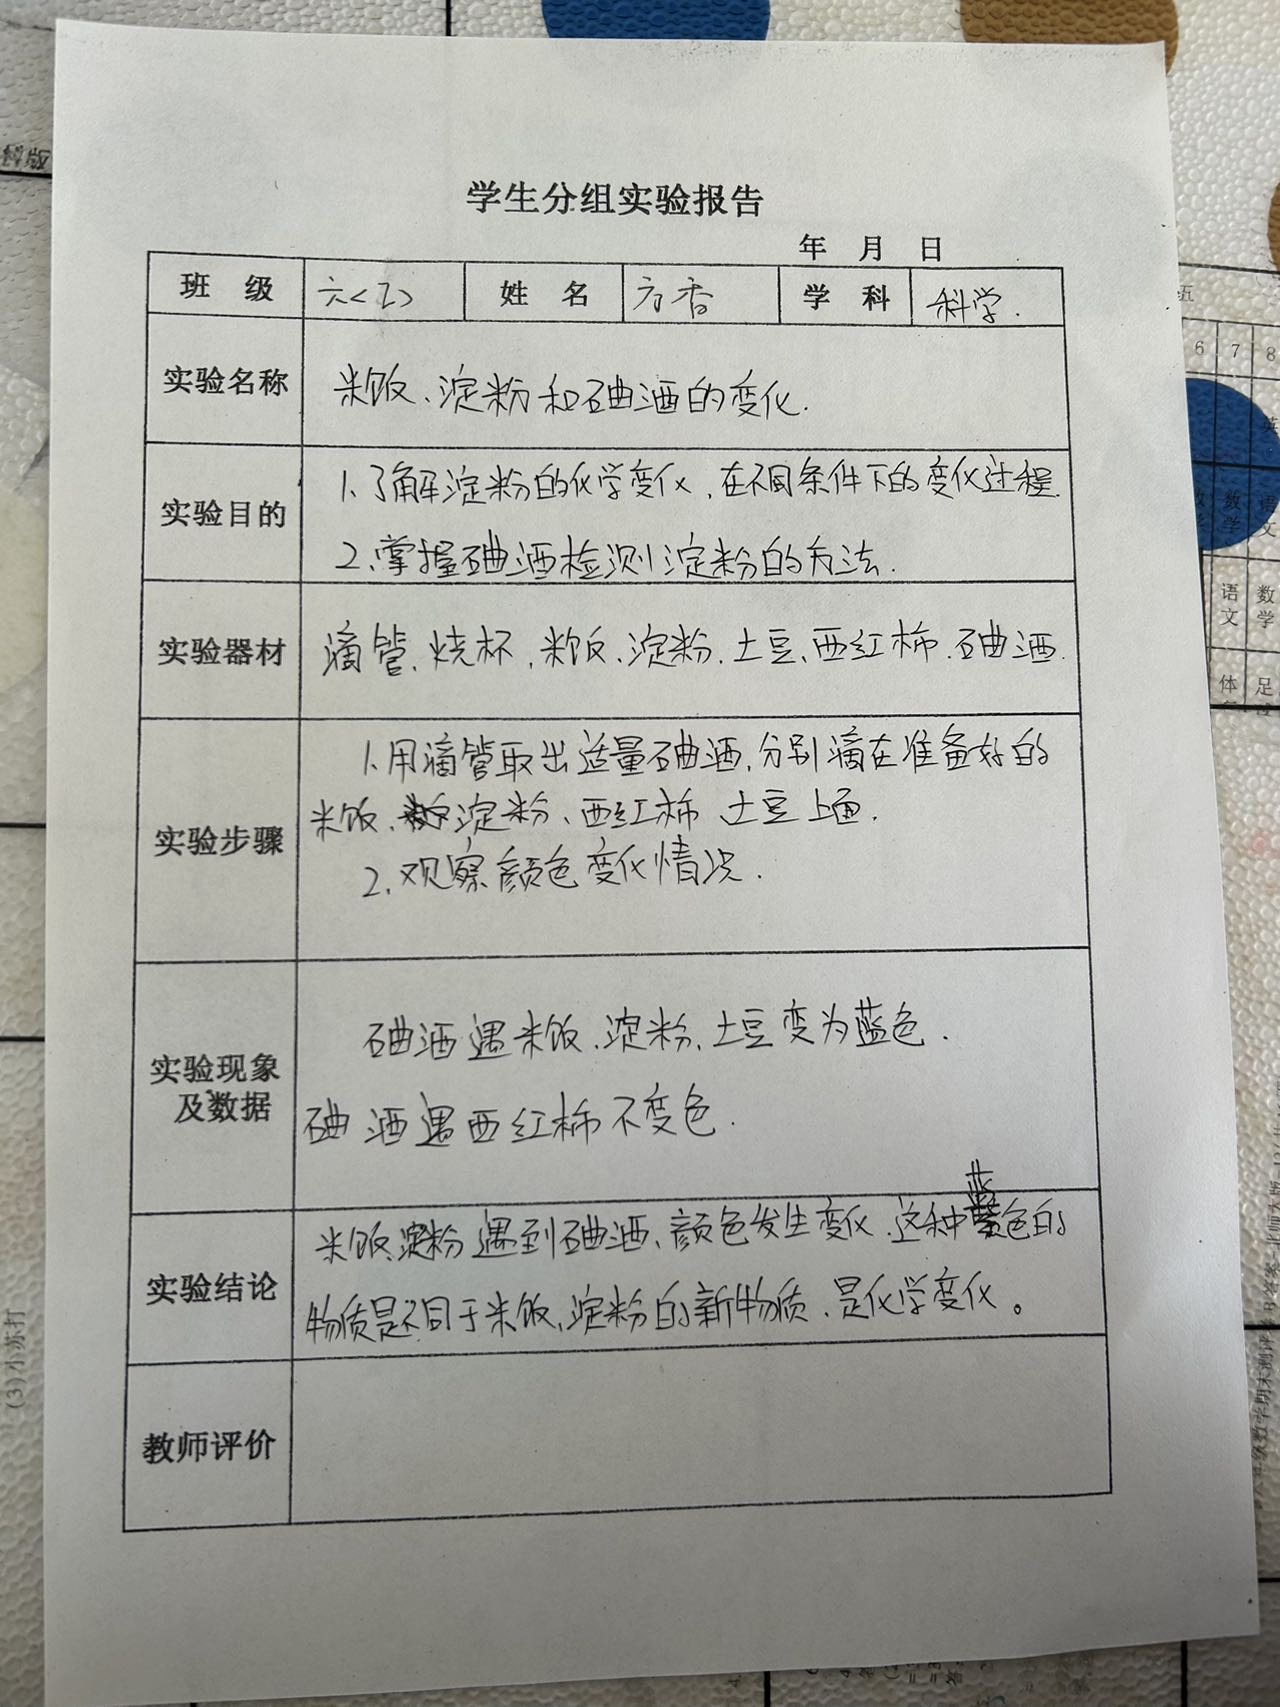 学生分组实验报告
年 月 日
班 级 六<2> 姓 名 方香 学 科 科学.
实验名称 米饭、淀粉和碘酒的变化.
实验目的 1、了解淀粉的化学变化、在不同条件下的变化过程.
2、掌握碘酒检测淀粉的方法.
实验器材 滴管、烧杯、米饭、淀粉、土豆、西红柿、碘酒.
实验步骤 1、用滴管取出适量碘酒、分别滴在准备好的
米饭、淀粉、西红柿、土豆上面.
2、观察颜色变化情况.
实验现象
及数据
碘酒遇米饭、淀粉、土豆变为蓝色.
碘酒遇西红柿不变色.
实验结论 米饭、淀粉遇到碘酒、颜色发生变化、这种蓝色的
物质是不同于米饭、淀粉的新物质、是化学变化。
教师评价
(3)小苏打
6 7 8
数学 语文
语文 数学
体 足